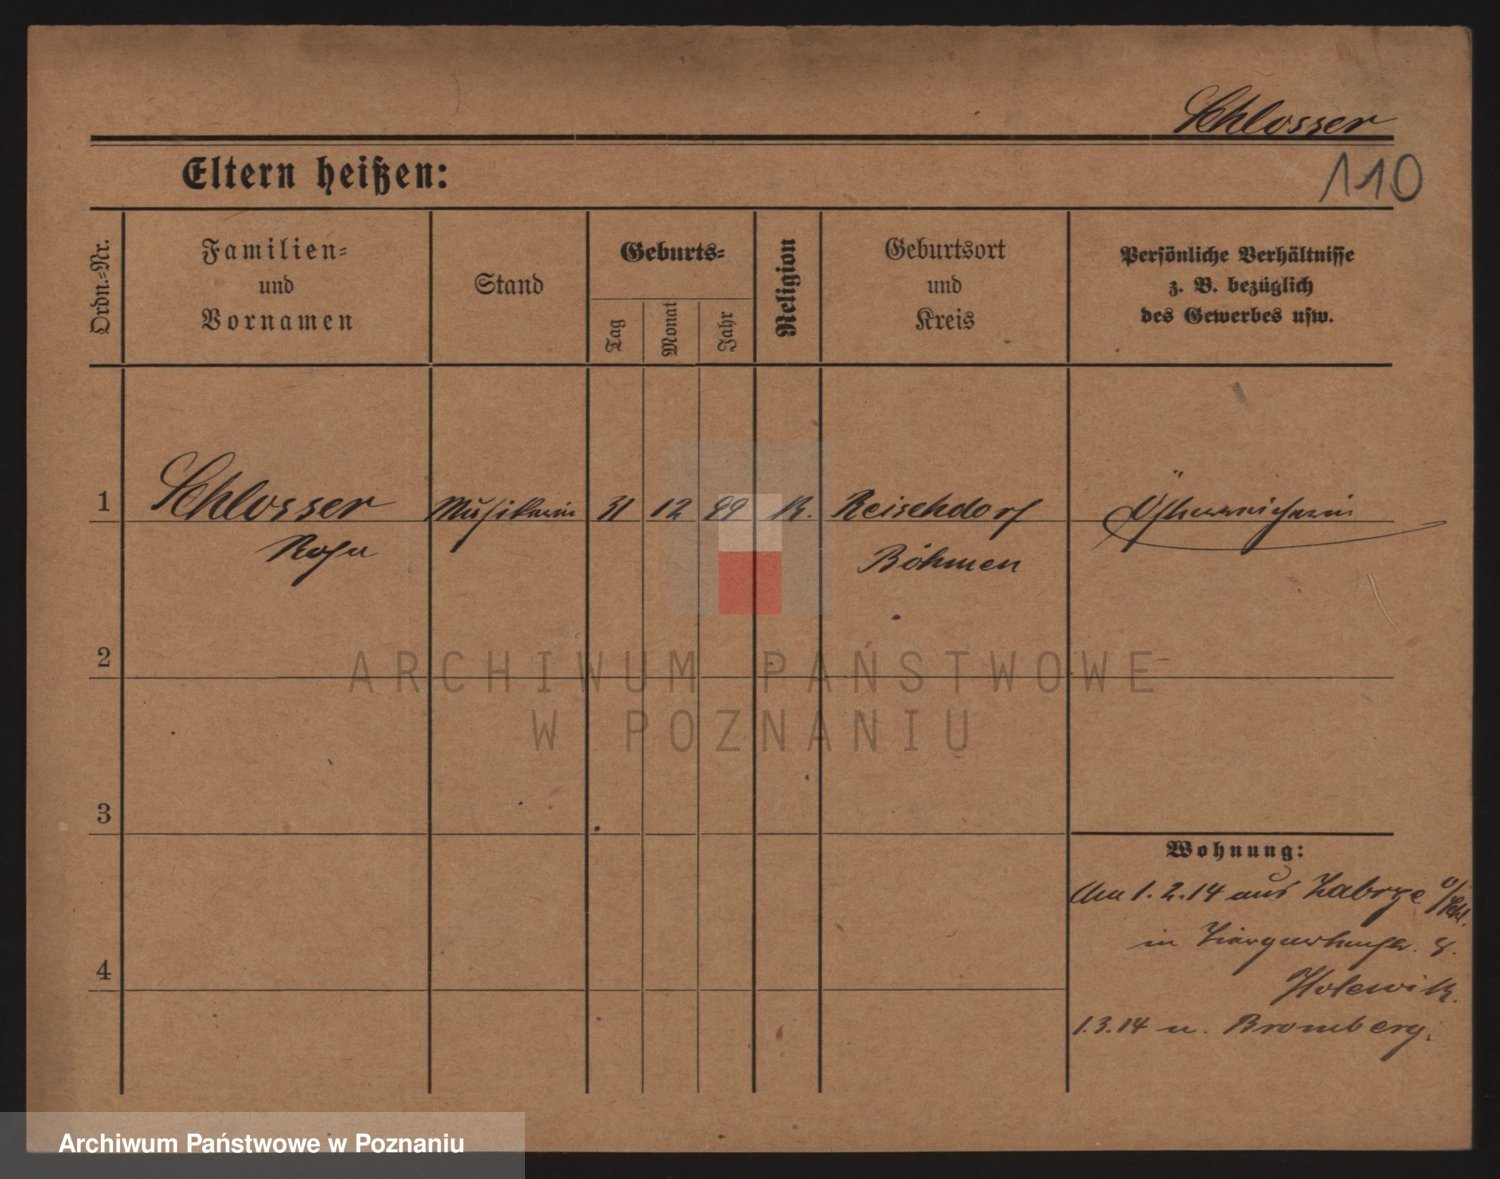 Schlosser
110
Eltern heißen:
Ordn.-Nr.
Familien-
und
Vornamen
Stand
Geburts-
Tag
Monat
Jahr
Religion
Geburtsort
und
Kreis
Persönliche Verhältnisse
z. B. bezüglich
des Gewerbes usw.
1 Schlosser Musikerin 31 12 99 K. Reischdorf Österreicherin
Rosa Böhmen
2
ARCHIWUM PAŃSTWOWE
W POZNANIU
3
Wohnung:
Am 1. 2. 14 aus Zabrze O/Schl.
in 8.
4
Holewik.
1.3.14 n. Bromberg.
Archiwum Państwowe w Poznaniu